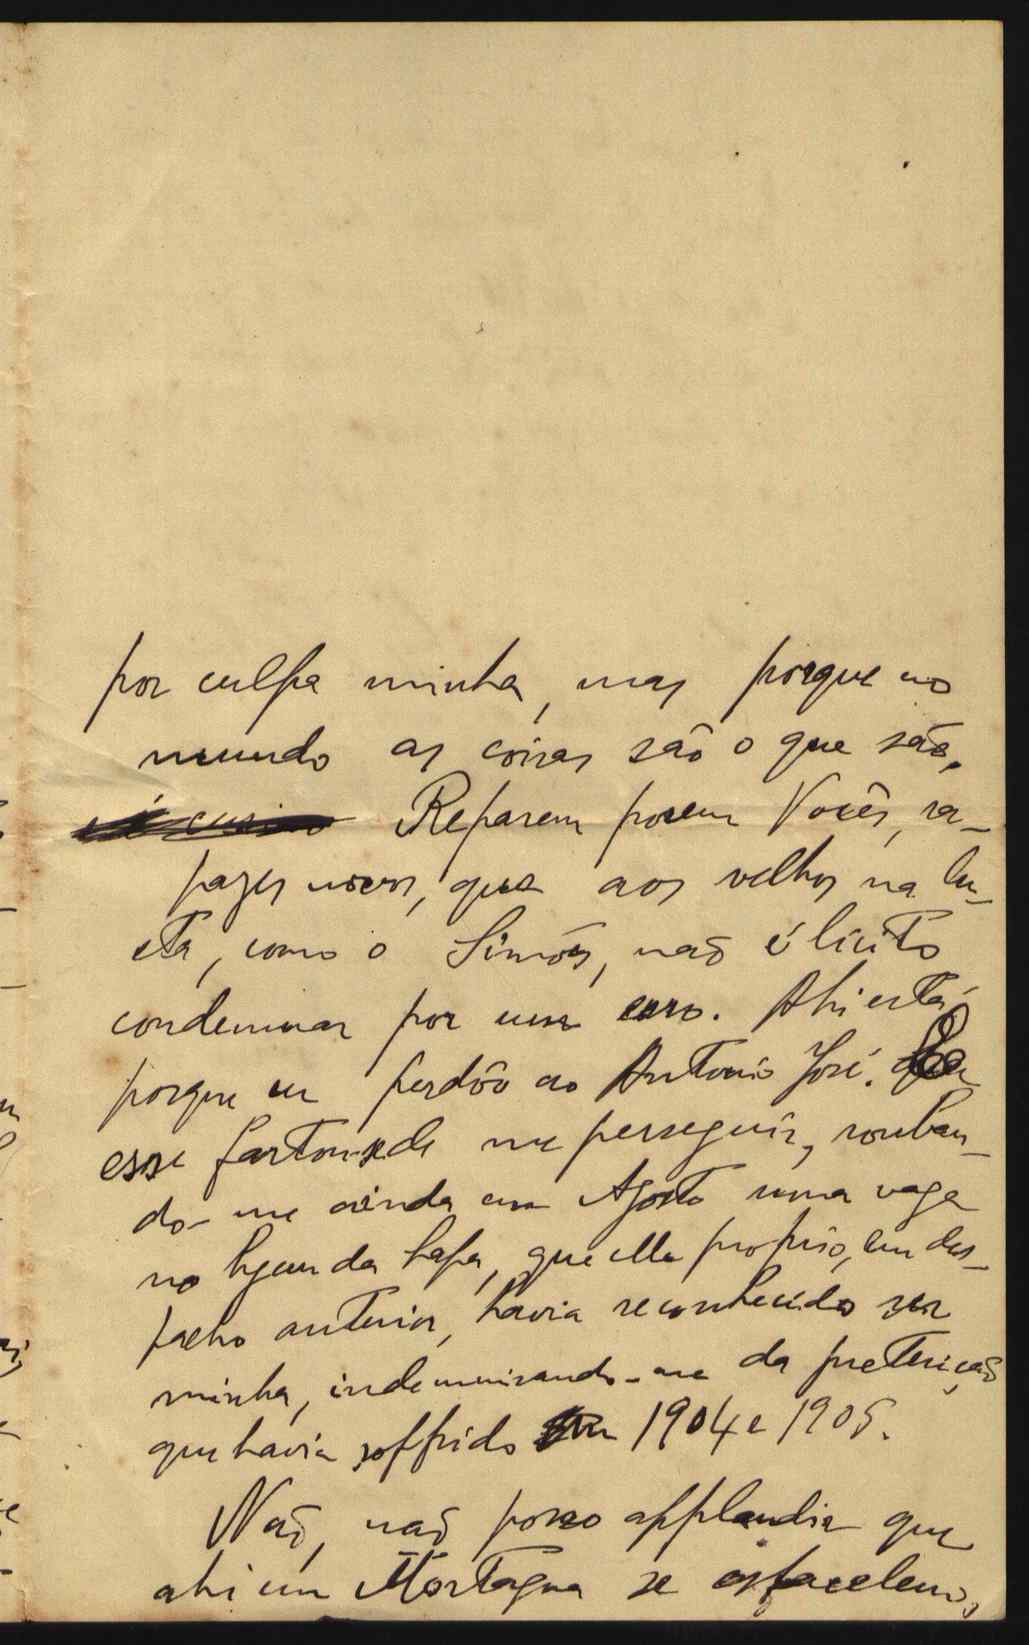 por culpa minha, mas porque no
mundo as coisas são o que são,
Reparem porem Vocês, ra-
pazes novos, que aos velhos na lu-
cta, como o Simões, não é licito
condemnar por um erro. Ahi está
porque eu perdôo ao Antonio José.
esse fartou-se de me perseguir, rouban-
do-me ainda em Agosto uma vaga
no Lyceu da Lapa, que elle proprio, em des-
pacho anterior, havia reconhecido ser
minha, indemnisando-me da preterição
que havia soffrido em 1904 e 1905.
Não, não posso applaudir que
ahi em Mortagua se esfacelem,